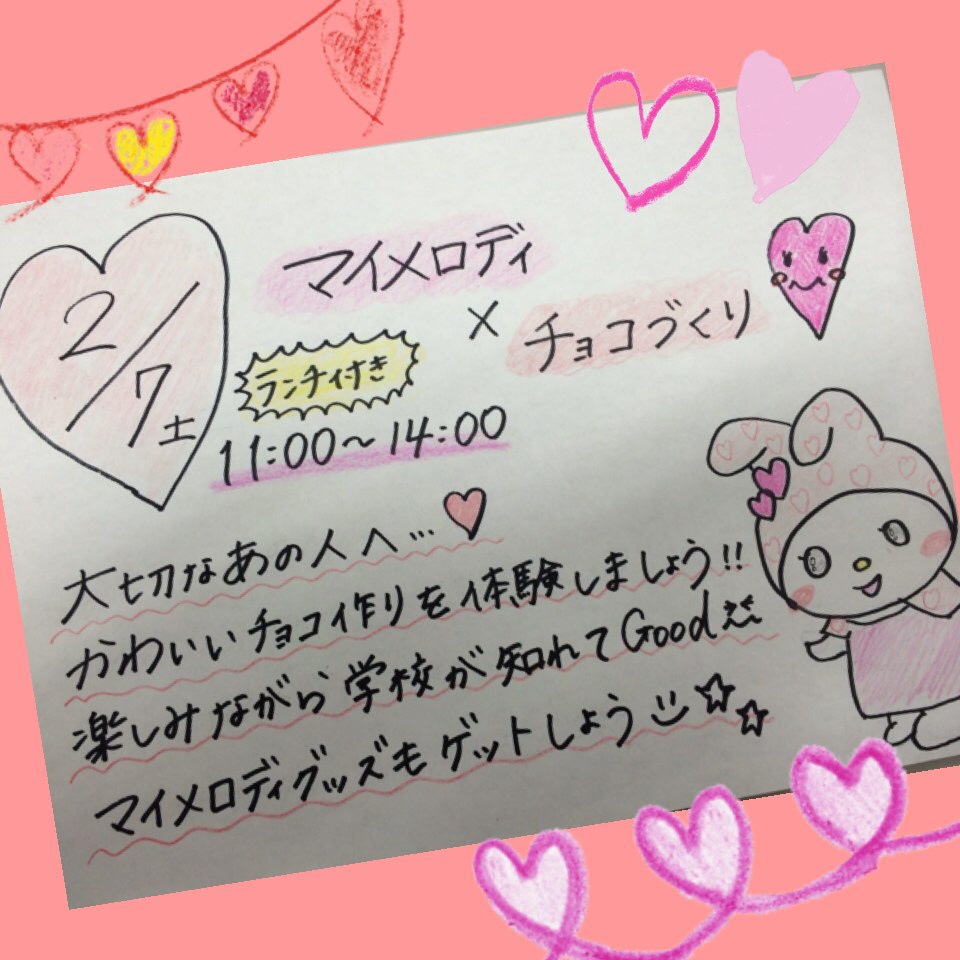 2/7土
マイメロディ
×
チョコづくり
ランチ付き
11:00〜14:00
大切なあの人へ…
かわいいチョコ作りを体験しましょう!!
楽しみながら学校が知れてGood
マイメロディグッズもゲットしよう